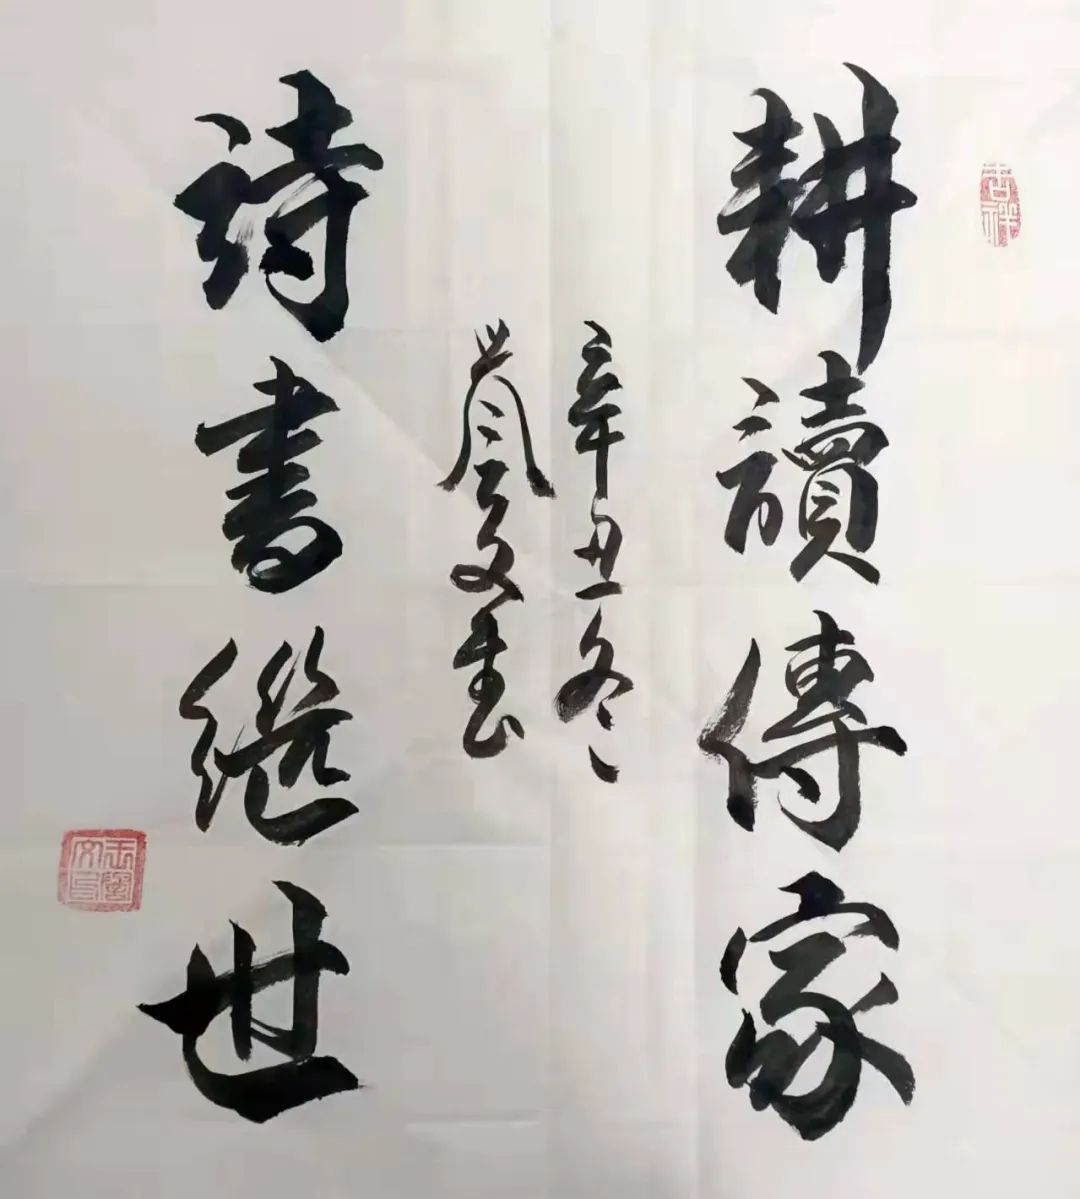 吉祥
耕讀傳家
辛丑冬
文書
詩書繼世